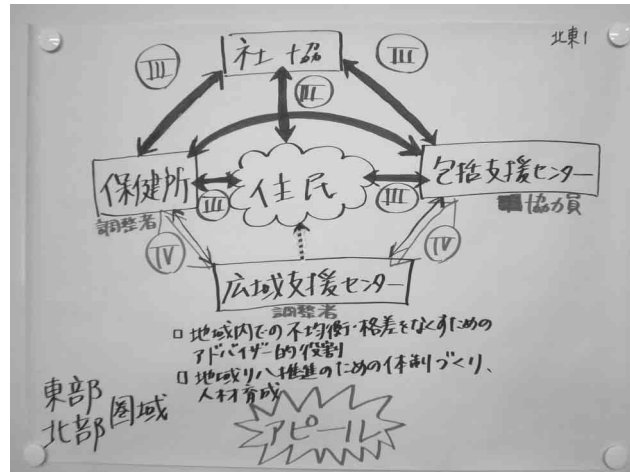 北東1
社協
III
III
III
保健所
住民
包括支援センター
III
III
調整者
協力員
IV
IV
広域支援センター
調整者
□ 地域内での不均衡・格差をなくすための
アドバイザー的役割
□ 地域リハ推進のための体制づくり、
人材育成
東部
北部
圏域
アピール